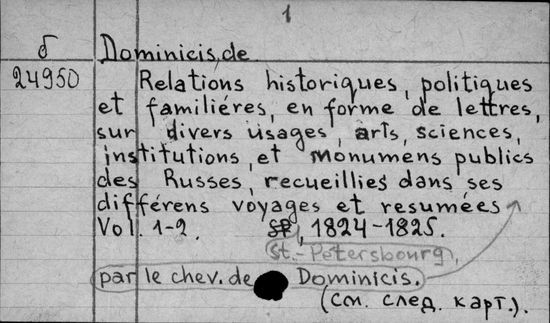 1
б
24950
Dominicis, de
Relations historiques, politiques
et familiéres, en forme de lettres,
sur divers usages, arts, sciences,
institutions, et monumens publics
des Russes, recueillies dans ses
différens voyages et resumées
Vol. 1-2. SP, 1824-1825.
St.-Petersbourg,
par le chev. de Dominicis.
(см. след. карт.).